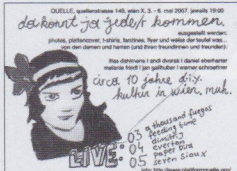 QUELLE, quellenstrasse 149, wien X, 3. - 6. mai 2007, jeweils 19:00
da konnt ja jede/r kommen.
ausgestellt werden:
photos, plattencover, t-shirts, fanzines, flyer und weiss der teufel was...
von den damen und herren (und ihren freundinnen und freunden):
ilse dahimene | andi dvorak | daniel eberharter
melanie friedl | jan gallhuber | werner schroettner
circa 10 jahre d.i.y.
kultur in wien, muh.
LIVE:
03 a thousand fuegos
feeding time
04 dimitrij
everton
05 paper bird
seven sioux